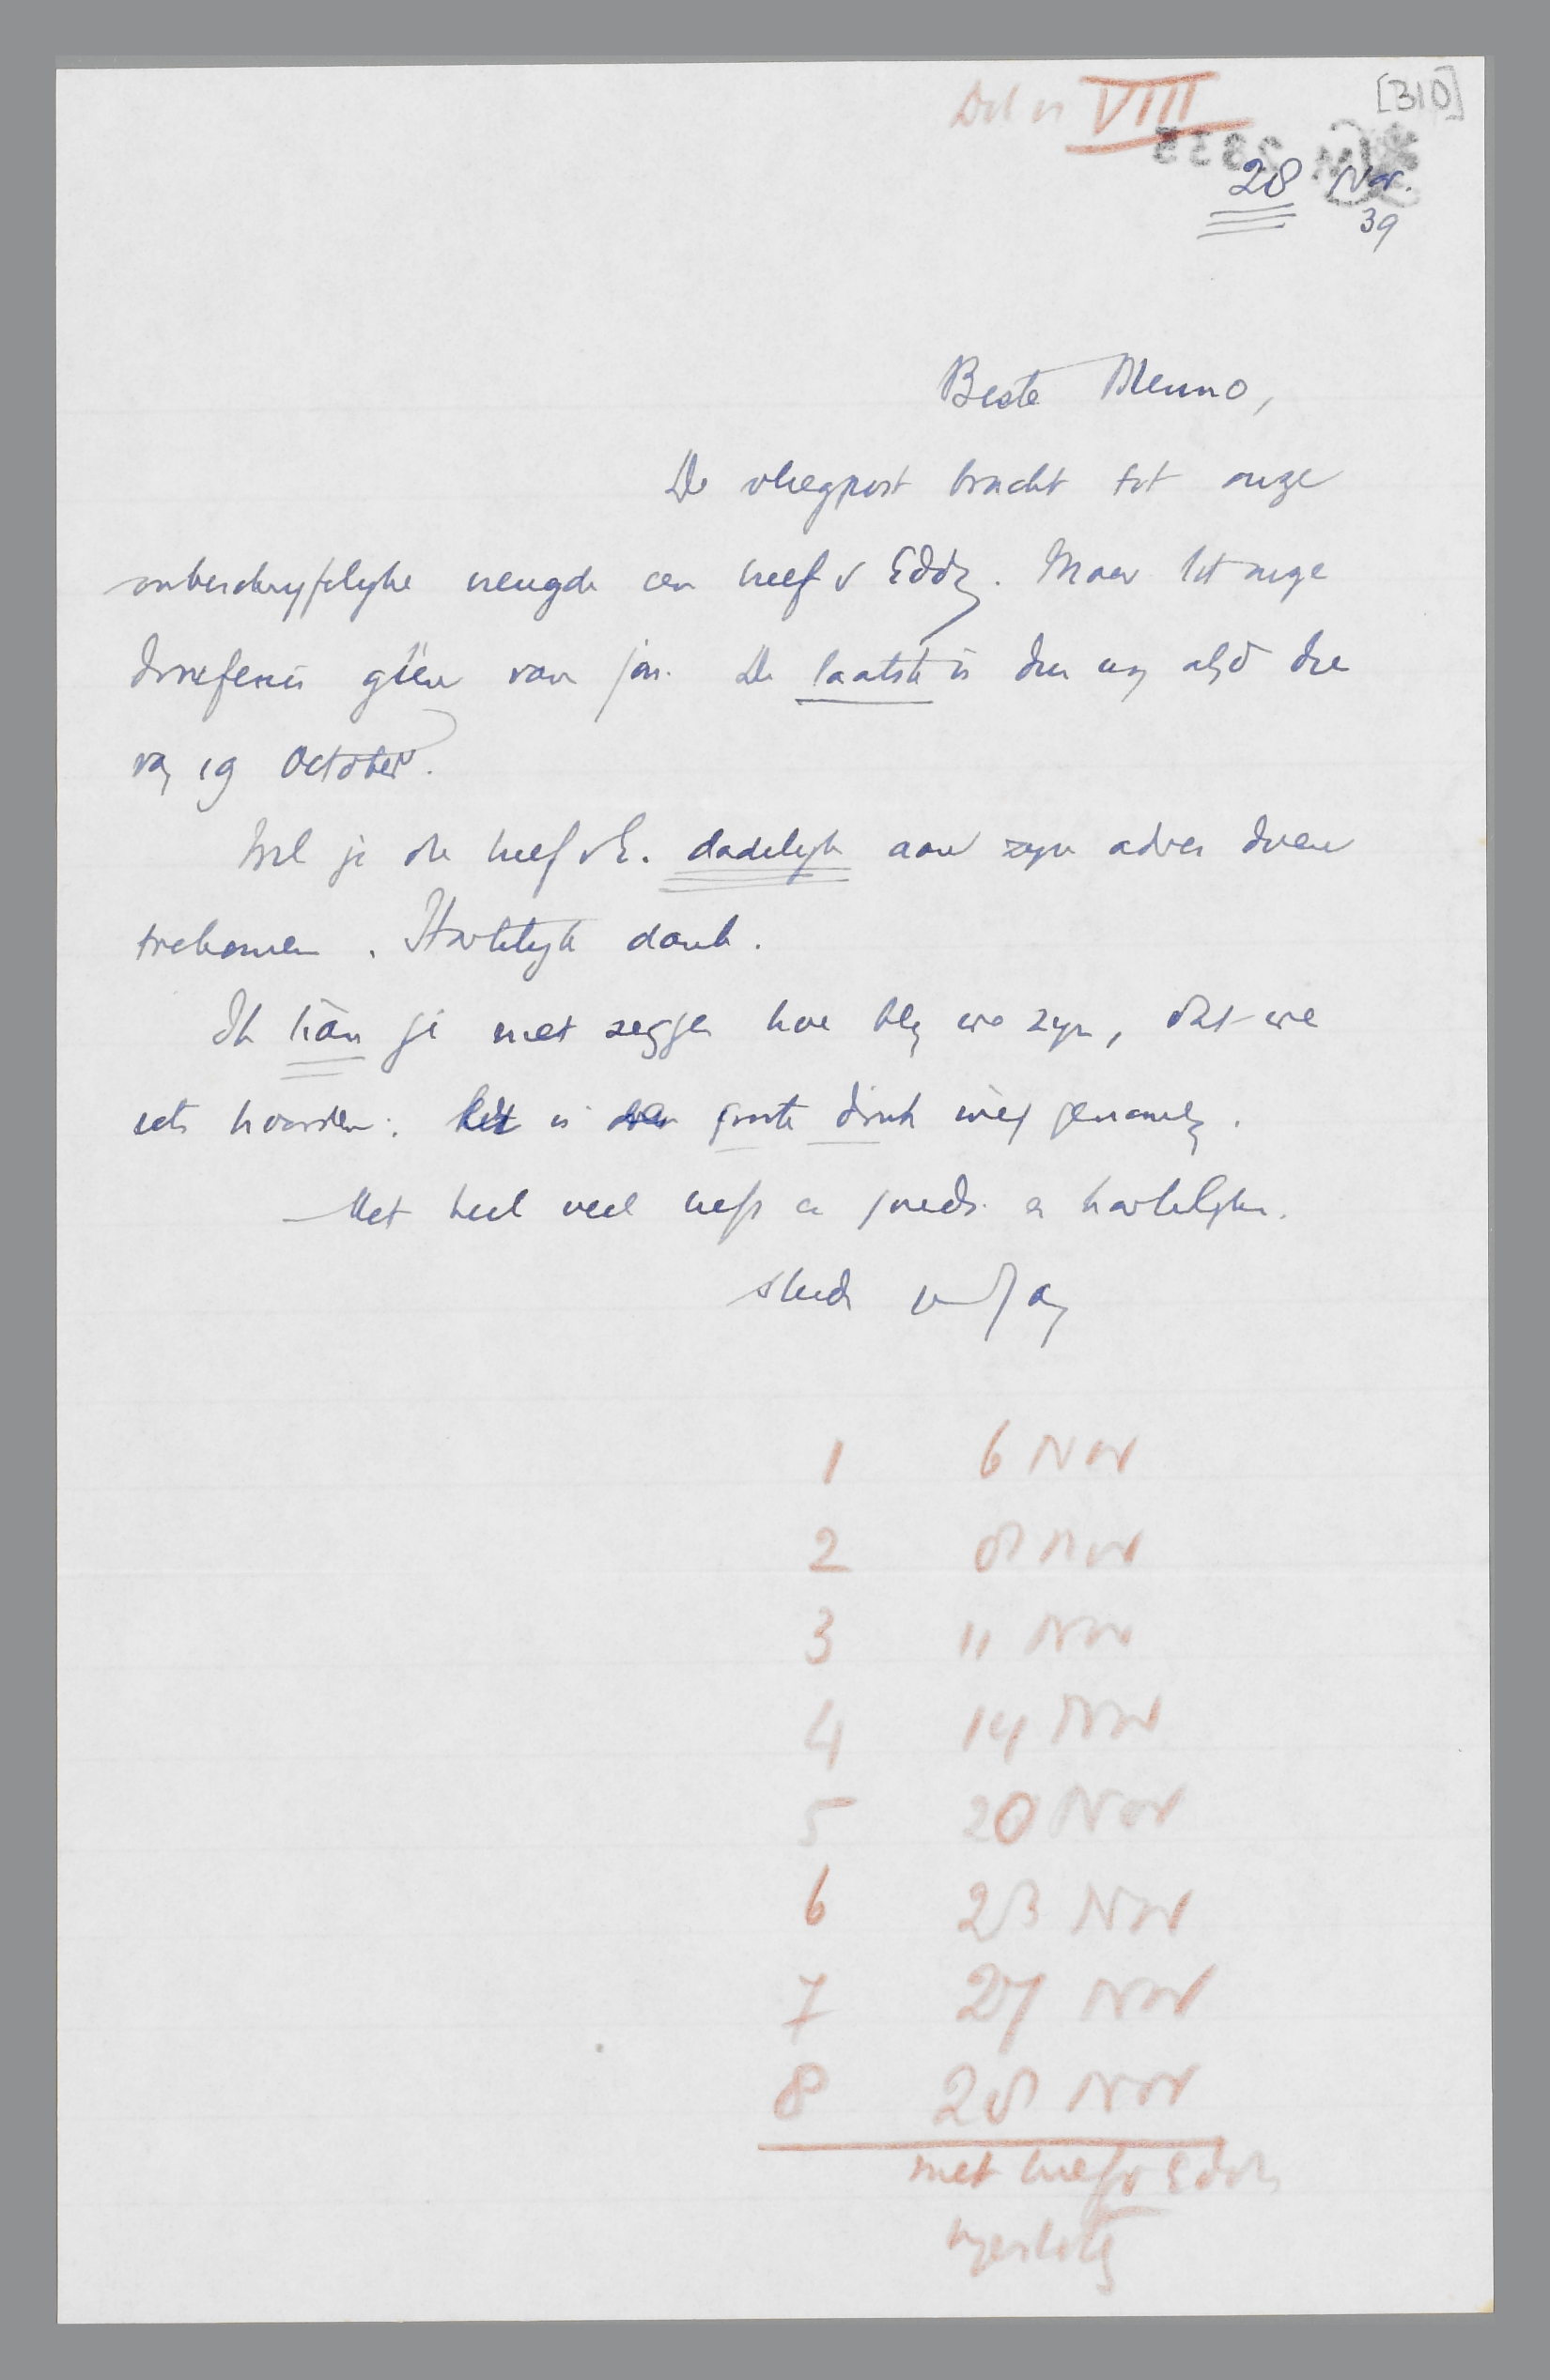 Dit is VIII
[310]
28 Nov.
39
Beste Menno,
De vliegpost bracht tot onze
onbeschryfelyke vreugde een brief v Eddy. Maar tot onze
droefenis géén van jou. De laatste is dus nog altyd die
van 19 October.
Wil je die brief v E. dadelyk aan zyn adres doen
toekomen. Hartelyk dank.
Ik kàn je niet zeggen hoe bly we zyn, dat we
iets hoorden. Het is een groote druk weg genomen.
Met heel veel liefs en goeds en hartelyks.
steeds
1 6 Nov
2 8 Nov
3 11 Nov
4 14 Nov
5 20 Nov
6 23 Nov
7 27 Nov
8 28 Nov
met brief v Eddy
ingesloten